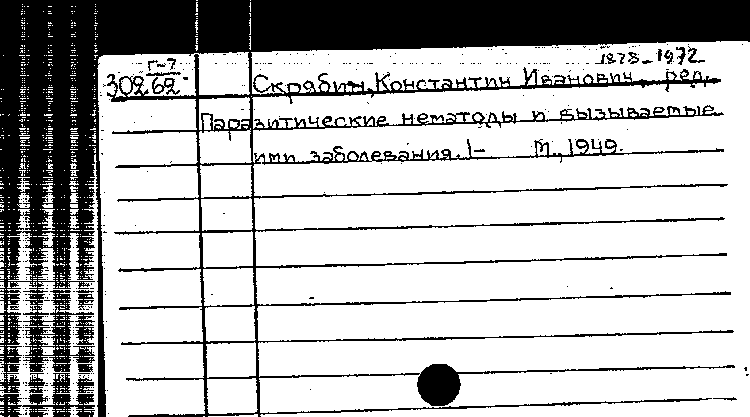 Г-7 1878-1972
302 62 Скрябин, Константин Иванович, ред.
Паразитические нематоды и вызываемые
ими заболевания. I- М., 1949.